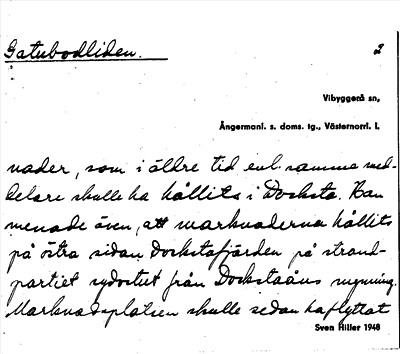 Gatubodliden. 2
Vibyggerå sn,
Ångermanl. s. doms. tg., Västernorrl. l.
nader, som i äldre tid enl. samma med-
delare skulle ha hållits i Docksta. Han
menade även, att marknaderna hållits
på östra sidan Dockstafjärden på strand-
partiet sydost ut från Dockstaåns mynning.
Marknadsplatsen skulle sedan ha flyttat
Sven Hiller 1948